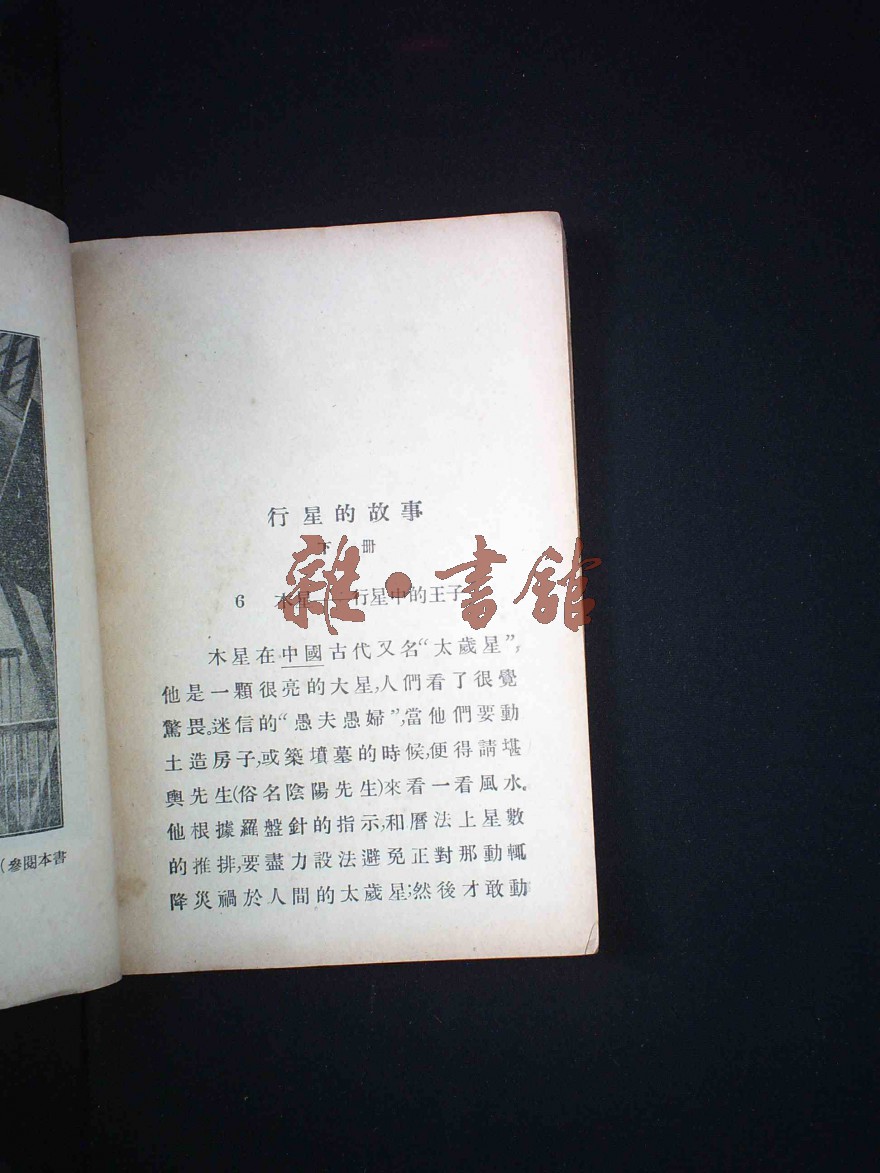 行星的故事
下冊
6 木星——行星中的王子
木星在中國古代又名“太歲星”,
他是一顆很亮的大星,人們看了很覺
驚畏。迷信的“愚夫愚婦”,當他們要動
土造房子,或築墳墓的時候,便得請堪
輿先生(俗名陰陽先生)來看一看風水。
他根據羅盤針的指示,和曆法上星數
的推排,要盡力設法避免正對那動輒
降災禍於人間的太歲星;然後才敢動
(參閱本書
雜·書館